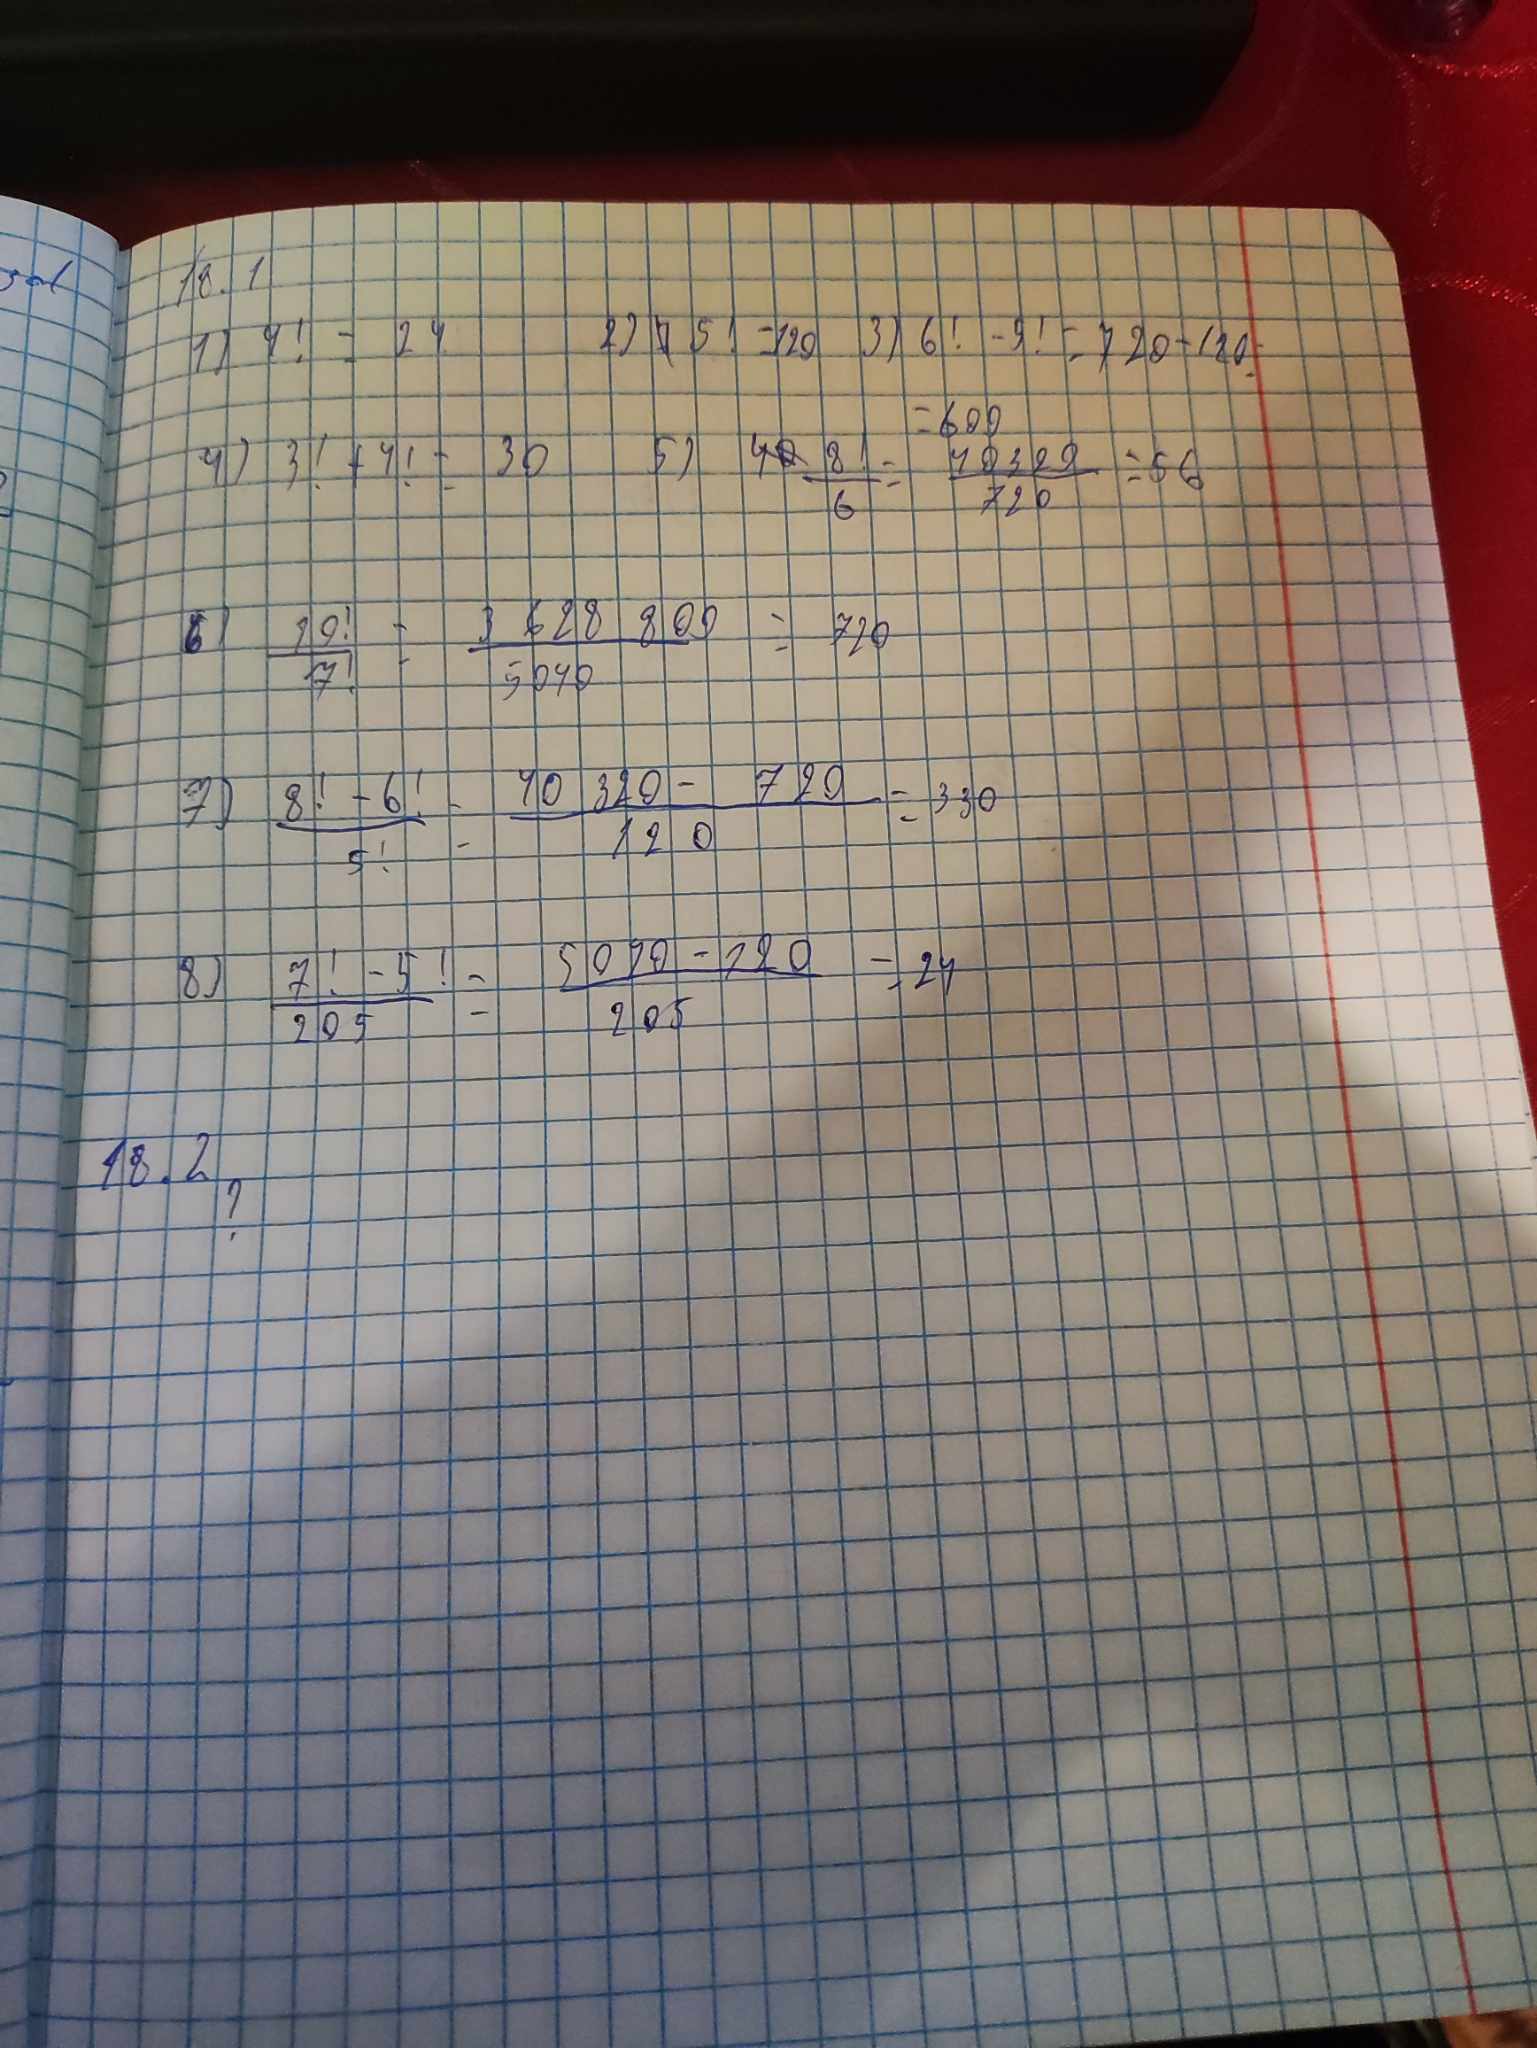 18.1
1) 4! = 24 2) 5! = 120 3) 6! - 5! = 720 - 120 =
= 600
4) 3! + 4! = 30 5) 8! / 6 = 40320 / 720 = 56
6) 10! / 7! = 3 628 800 / 5040 = 720
7) 8! - 6! / 5! = 40 320 - 720 / 120 = 330
8) 7! - 5! / 205 = 5040 - 120 / 205 = 24
18.2
?